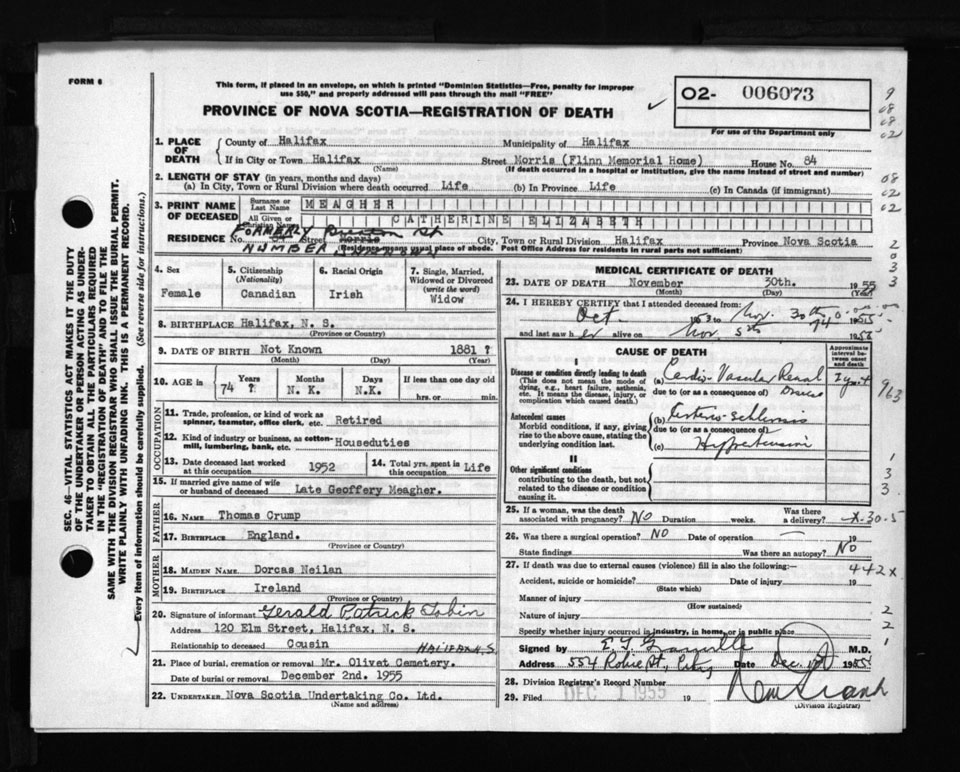 FORM 6
This form, if placed in an envelope, on which is printed "Dominion Statistics—Free, penalty for improper
use $50," and properly addressed will pass through the mail "FREE"
PROVINCE OF NOVA SCOTIA—REGISTRATION OF DEATH
02- 006073
For use of the Department only
1. PLACE OF DEATH
County of Halifax Municipality of Halifax
If in City or Town Halifax Street Morris (Flinn Memorial Home) House No. 84
(Name) (If death occurred in a hospital or institution, give the name instead of street and number)
2. LENGTH OF STAY (in years, months and days)
(a) In City, Town or Rural Division where death occurred Life (b) In Province Life (c) In Canada (if immigrant)
3. PRINT NAME OF DECEASED
Surname or Last Name MEAGHER
All Given or CATHERINE ELIZABETH
FORMERLY St
RESIDENCE No. 84 Street Morris City, Town or Rural Division Halifax Province Nova Scotia
NUMBER
(Residence means usual place of abode. Post Office Address for residents in rural parts not sufficient)
4. Sex
Female
5. Citizenship
(Nationality)
Canadian
6. Racial Origin
Irish
7. Single, Married,
Widowed or Divorced
(write the word)
Widow
8. BIRTHPLACE Halifax, N. S.
(Province or Country)
9. DATE OF BIRTH Not Known 1881 ?
(Month) (Day) (Year)
10. AGE in
Years 74 ?
Months N. K.
Days N.K.
If less than one day old
hrs. or min.
OCCUPATION
11. Trade, profession, or kind of work as
spinner, teamster, office clerk, etc. Retired
12. Kind of industry or business, as cotton-
mill, lumbering, bank, etc. Houseduties
13. Date deceased last worked
at this occupation 1952
14. Total yrs. spent in
this occupation Life
15. If married give name of wife
or husband of deceased Late Geoffery Meagher.
FATHER
16. NAME Thomas Crump
17. BIRTHPLACE England.
(Province or Country)
MOTHER
18. MAIDEN NAME Dorcas Neilan
19. BIRTHPLACE Ireland
(Province or Country)
20. Signature of informant Gerald Patrick Tobin
Address 120 Elm Street, Halifax, N. S.
Relationship to deceased Cousin
HALIFAX N.S.
21. Place of burial, cremation or removal Mr. Olivet Cemetery.
Date of burial or removal December 2nd. 1955
22. UNDERTAKER Nova Scotia Undertaking Co. Ltd.
(Name and address)
MEDICAL CERTIFICATE OF DEATH
23. DATE OF DEATH November 30th. 1955
(Month) (Day) (Year)
24. I HEREBY CERTIFY that I attended deceased from:
Oct. 1953 to Nov. 30th 1955
and last saw her alive on Nov. 5th
CAUSE OF DEATH
Approximate
interval between
onset and
death
Disease or condition directly leading to death
(This does not mean the mode of
dying, e.g., heart failure, asthenia,
etc. It means the disease, injury, or
complication which caused death.)
(a) Cardio Vascular Renal
due to (or as a consequence of) Disease
Antecedent causes
Morbid conditions, if any, giving
rise to the above cause, stating the
underlying condition last.
(b) Arterio-sclerosis
due to (or as a consequence of)
(c) Hypertension
II
Other significant conditions
contributing to the death, but not
related to the disease or condition
causing it.
25. If a woman, was the death
associated with pregnancy? NO Duration weeks. Was there
a delivery?
X-30-5
26. Was there a surgical operation? NO Date of operation — 19
State findings Was there an autopsy? No
27. If death was due to external causes (violence) fill in also the following:—
442 x
Accident, suicide or homicide? Date of injury 19
(State which)
Manner of injury
(How sustained)
Nature of injury
Specify whether injury occurred in industry, in home, or in public place
Signed by M.D.
Address 554 Robie St, City Date Dec. 1955
28. Division Registrar's Record Number
29. Filed DEC 1 1955 19
(Division Registrar)
SEC. 46—VITAL STATISTICS ACT MAKES IT THE DUTY
OF THE UNDERTAKER OR PERSON ACTING AS UNDER-
TAKER TO OBTAIN ALL THE PARTICULARS REQUIRED
IN THE "REGISTRATION OF DEATH" AND TO FILE THE
SAME WITH THE DIVISION REGISTRAR WHO SHALL ISSUE THE BURIAL PERMIT.
WRITE PLAINLY WITH UNFADING INK. THIS IS A PERMANENT RECORD.
Every item of information should be carefully supplied. (See reverse side for instructions.)
9
08
08
02
08
02
02
2
0
3
3
963
1
3
3
2
2
1